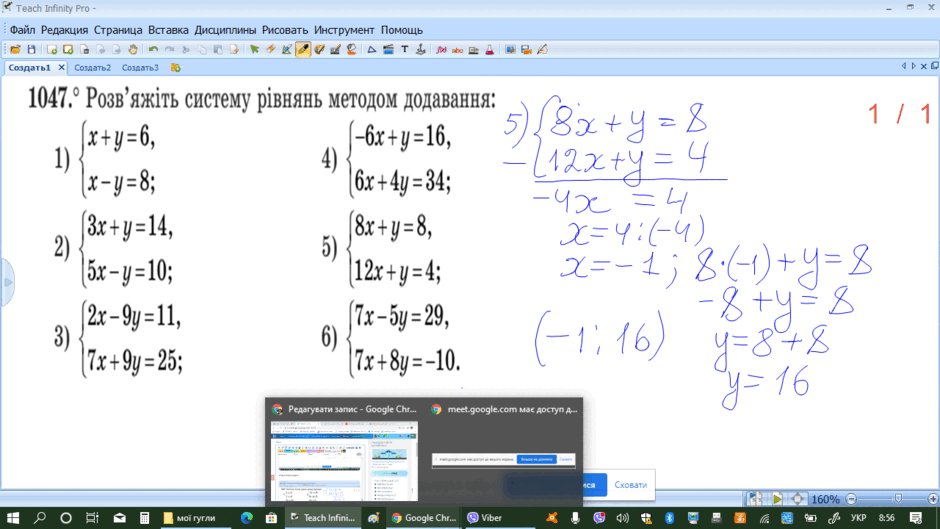 Teach Infinity Pro -
Файл Редакция Страница Вставка Дисциплины Рисовать Инструмент Помощь
Создать1 Создать2 Создать3
1047.° Розв’яжіть систему рівнянь методом додавання:
1) {x+y=6,
x−y=8;
2) {3x+y=14,
5x−y=10;
3) {2x−9y=11,
7x+9y=25;
4) {−6x+y=16,
6x+4y=34;
5) {8x+y=8,
12x+y=4;
6) {7x−5y=29,
7x+8y=−10.
5) {8x+y=8
− 12x+y=4
−4x =4
x=4:(−4)
x=−1; 8·(−1)+y=8
−8+y=8
y=8+8
y=16
(−1; 16)
1 / 1
Редагувати запис - Google Chr...
meet.google.com має доступ д...
Сховати
160%
мої гугли
Teach Infini...
Google Chr...
Viber
УКР
8:56